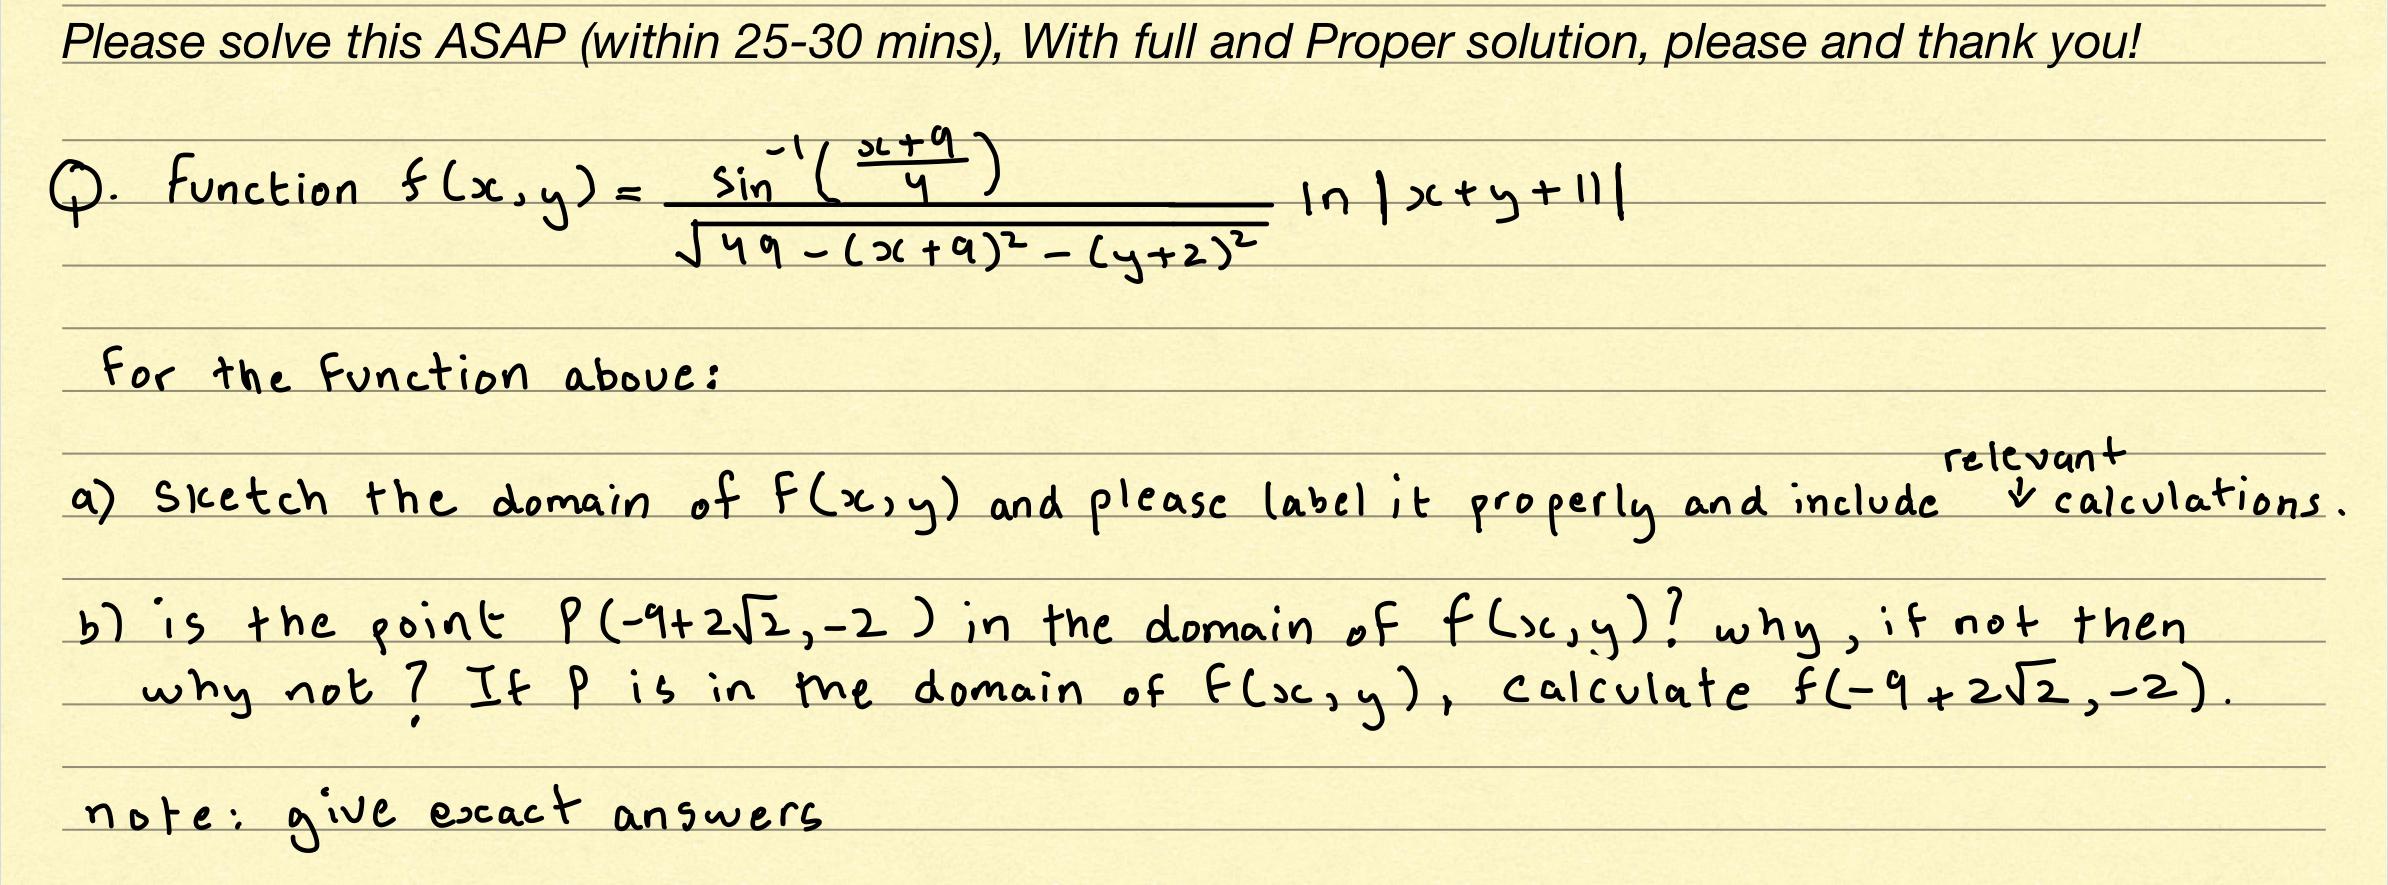 Please solve this ASAP (within 25-30 mins), With full and Proper solution, please and thank you!
Q. Function f(x,y) = sin⁻¹((x+9)/4) / √(49-(x+9)²-(y+2)²) ln |x+y+11|
For the function above:
a) Sketch the domain of F(x,y) and please label it properly and include relevant ↓ calculations.
b) is the point P(-9+2√2,-2) in the domain of f(x,y)? why, if not then
why not? If P is in the domain of F(x,y), calculate f(-9+2√2,-2).
note: give exact answers